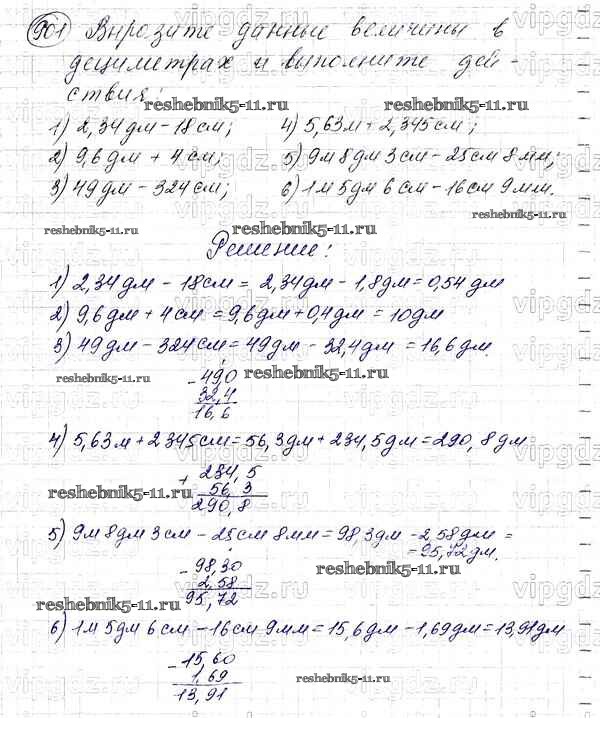 901 Вырозите данные величины в
дециметрах и выполните дей-
ствия:
reshebnik5-11.ru reshebnik5-11.ru
1) 2,34 дм - 18 см; 4) 5,63 м + 2,345 см;
2) 9,6 дм + 4 см; 5) 9 м 8 дм 3 см - 25 см 8 мм;
3) 49 дм - 324 см; 6) 1 м 5 дм 6 см - 16 см 9 мм.
reshebnik5-11.ru
reshebnik5-11.ru reshebnik5-11.ru
Решение:
1) 2,34 дм - 18 см = 2,34 дм - 1,8 дм = 0,54 дм
2) 9,6 дм + 4 см = 9,6 дм + 0,4 дм = 10 дм
3) 49 дм - 324 см = 49 дм - 32,4 дм = 16,6 дм.
reshebnik5-11.ru reshebnik5-11.ru
- 49,0
32,4
16,6
4) 5,63 м + 2345 см = 56,3 дм + 234,5 дм = 290,8 дм
+ 234,5
reshebnik5-11.ru
56,3
290,8
5) 9 м 8 дм 3 см - 25 см 8 мм = 98,3 дм - 2,58 дм =
= 95,72 дм.
- 98,30
reshebnik5-11.ru
2,58
95,72
reshebnik5-11.ru
6) 1 м 5 дм 6 см - 16 см 9 мм = 15,6 дм - 1,69 дм = 13,91 дм
- 15,60
1,69
reshebnik5-11.ru
13,91
vipgdz.ru